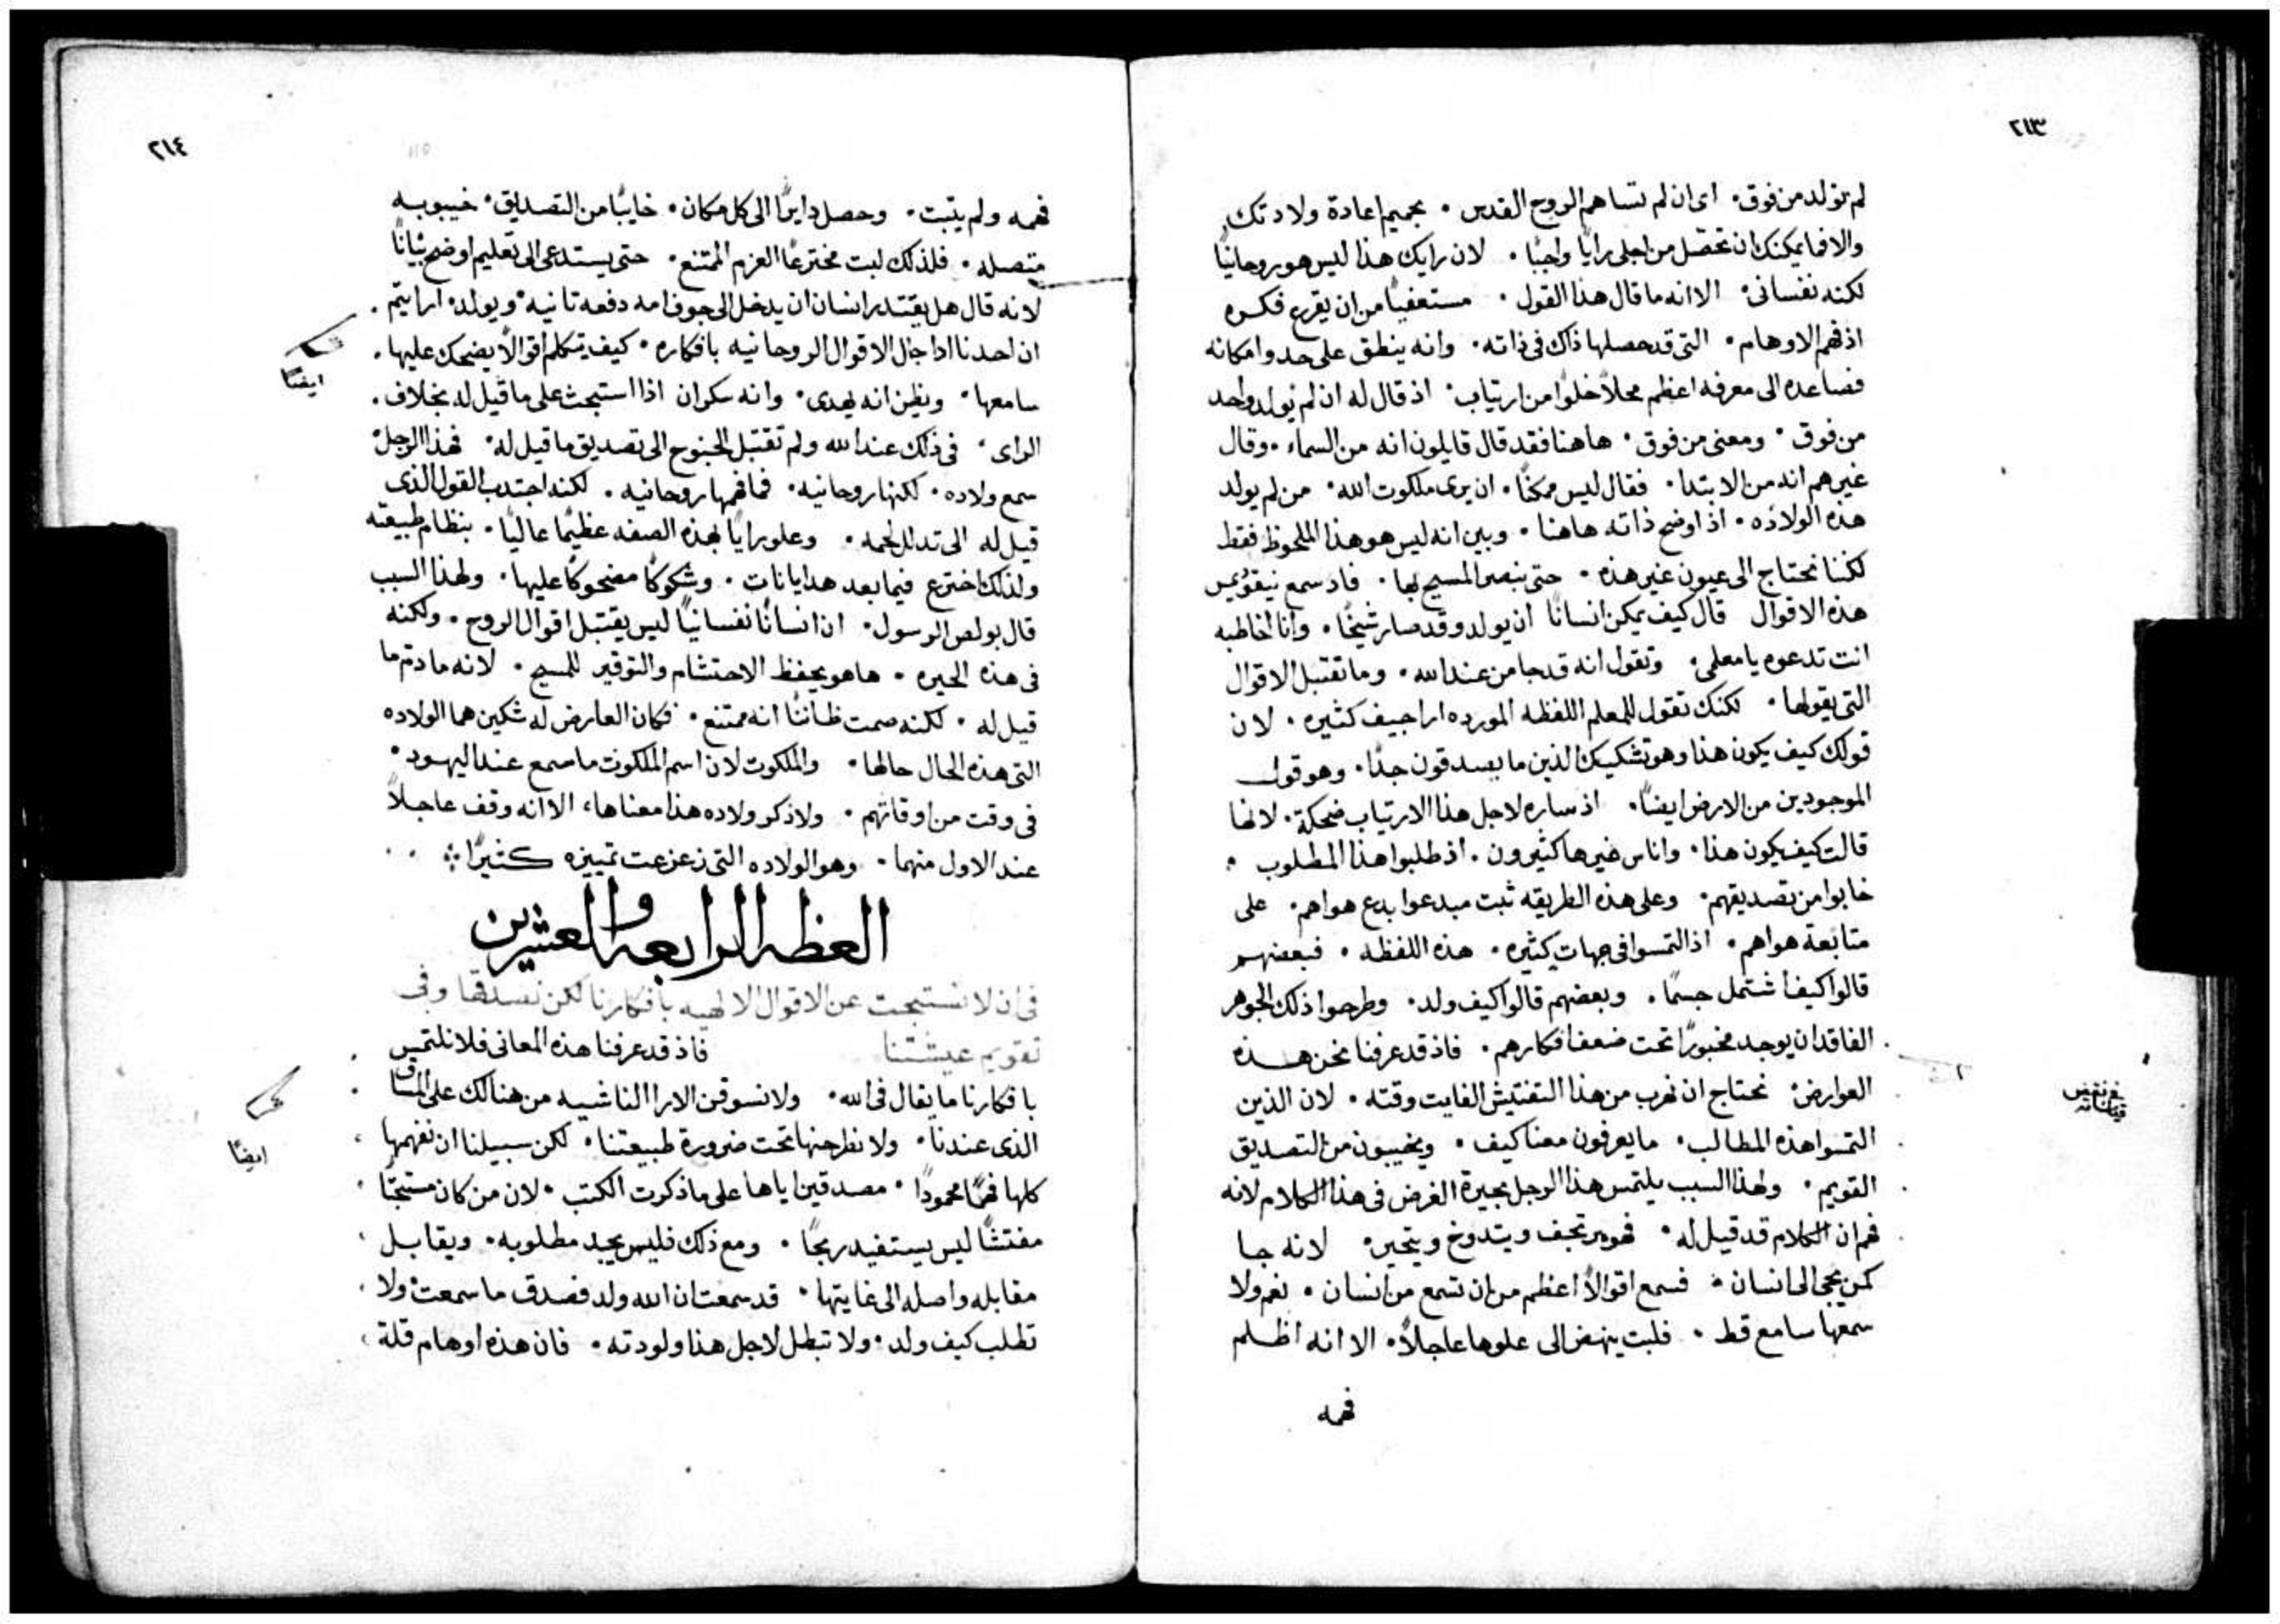 ٢١٣
لم تولد من فوق٠ اى ان لم تساهم الروح القدس ٠ بحميم اعادة ولادتك
والا فما يمكنك ان تحصل من اجلى رايًا واجبًا ٠ لان رايك هذا ليس هو روحانيًا
لكنه نفسانى٠ الا انه ما قال هذا القول ٠ مستعفيًا من ان يقرع فكره
اذ فهم الاوهام٠ التى قد حصلها ذاك فى ذاته٠ وانه ينطق على حد وامكانه
فصاعده الى معرفه اعظم محلاً خلوًا من ارتياب٠ اذ قال له ان لم يولد واحد
من فوق ٠ ومعنى من فوق٠ هاهنا فقد قال قايلون انه من السماء ٠ وقال
غيرهم انه من الابتدا٠ فقال ليس ممكنًا٠ ان يرى ملكوت الله٠ من لم يولد
هذه الولاده٠ اذ اوضح ذاته هاهنا٠ وبين انه ليس هو هذا الملحوظ فقط
لكننا نحتاج الى عيون غير هذه ٠ حتى نبصر المسيح بها٠ فاد سمع نيقوديمس
هذه الاقوال قال كيف يمكن انسانًا ان يولد وقد صار شيخًا٠ وانا اخاطبه
انت تدعوه يا معلمى٠ وتقول انه قد جا من عند الله٠ وما تقتبل الاقوال
التى يقولها٠ لكنك تقول للمعلم اللفظه الموردة اراجيف كثيره٠ لان
قولك كيف يكون هذا وهو تشكيك الذين ما يصدقون جدًا٠ وهو قول
الموجودين من الارض ايضًا٠ اذ ساره لاجل هذا الارتياب ضحكة٠ لانها
قالت كيف يكون هذا٠ واناس غيرها كثيرون٠ اذ طلبوا هذا المطلوب ٠
خابوا من تصديقهم٠ وعلى هذه الطريقه ثبت مبدعوا بدع هواهم٠ على
متابعة هواهم٠ اذ التمسوا فى جهات كثيره٠ هذه اللفظه ٠ فبعضهم
قالوا كيف اشتمل جسمًا٠ وبعضهم قالوا كيف ولد٠ وطرحوا ذلك الجوهر
الفاقد ان يوجد مخبورًا تحت ضعف افكارهم٠ فاذ قد عرفنا نحن هذه
العوارض٠ نحتاج ان نهرب من هذا التفتيش الفايت وقته ٠ لان الذين
التمسوا هذه المطالب٠ ما يعرفون معنا كيف ٠ ويخيبون من التصديق
القويم٠ ولهذا السبب يلتمس هذا الرجل بحيرة الغرض فى هذا الكلام لانه
فهم ان الكلام قد قيل له٠ فهو يرتجف ويتدوخ ويتحير٠ لانه جا
كمن يجى الى انسان ٠ فسمع اقوالاً اعظم من ان تسمع من انسان ٠ نعم ولا
سمعها سامع قط ٠ فلبت ينهض الى علوها عاجلاً٠ الا انه اظلم
فهمه
٢١٤
فهمه ولم يتبت٠ وحصل دايرًا الى كل مكان٠ خايبًا من التصديق٠ خيبوبه
متصله٠ فلذلك لبت مخترعًا العزم الممتنع٠ حتى يستدعى الى تعليم اوضح بيانًا
لانه قال هل يقتدر انسان ان يدخل الى جوف امه دفعه تانيه٠ ويولد٠ ارايتم٠
ان احدنا ادا جال الاقوال الروحانيه بافكاره٠ كيف يتكلم اقوالاً يضحك عليها٠
ايضًا
سامعها٠ ويظن انه يهدى٠ وانه سكران اذا استبحث على ما قيل له بخلاف٠
الراى٠ فى ذلك عند الله ولم تقتبل الجنوح الى تصديق ما قيل له٠ فهذا الرجل
سمع ولاده٠ لكنها روحانيه٠ فما فهمها روحانيه٠ لكنه اجتدب القول الذى
قيل له الى تدلل لحمه٠ وعلو رايًا بهذه الصفه عظيمًا عاليًا٠ بنظام طبيعته
ولذلك اخترع فيما بعد هدايانات٠ وشكوكًا مضحوكًا عليها٠ ولهذا السبب
قال بولص الرسول٠ ان انسانًا نفسانيًا ليس يقتبل اقوال الروح٠ ولكنه
فى هذه الحيره٠ هاهو يحفظ الاحتشام والتوقير للمسيح٠ لانه ما دتم ما
قيل له ٠ لكنه صمت ظاننًا انه ممتنع٠ فكان العارض له شكين هما الولاده
التى هذه الحال حالها٠ والملكوت لان اسم الملكوت ما سمع عند اليهود٠
فى وقت من اوقاتهم٠ ولا ذكر ولاده هذا معناها، الا انه وقف عاجلاً
عند الاول منهما٠ وهو الولاده التى زعزعت تمييزه كثيرًا
العظه الرابعه والعشرين
فى ان لا نستبحت عن الاقوال الالهيه بافكارنا لكن نصدقها وفى
تقويم عيشتنا فاذ قد عرفنا هذه المعانى فلا نلتمس
بافكارنا ما يقال فى الله٠ ولا نسوقن الارا الناشيه من هنالك على المساق
الذى عندنا٠ ولا نطرحنها تحت ضرورة طبيعتنا٠ لكن سبيلنا ان نفهمها
ايضًا
كلها فهمًا محمودًا٠ مصدقين اياها على ما ذكرت الكتب٠ لان من كان مستبحتًا
مفتشًا ليس يستفيد ربحًا ٠ ومع ذلك فليس يجد مطلوبه٠ ويقابل
مقابله واصله الى غايتها٠ قد سمعت ان الله ولد فصدق ما سمعت ولا
تطلب كيف ولد٠ ولا تبطل لاجل هذا ولودته٠ فان هذه اوهام قلة